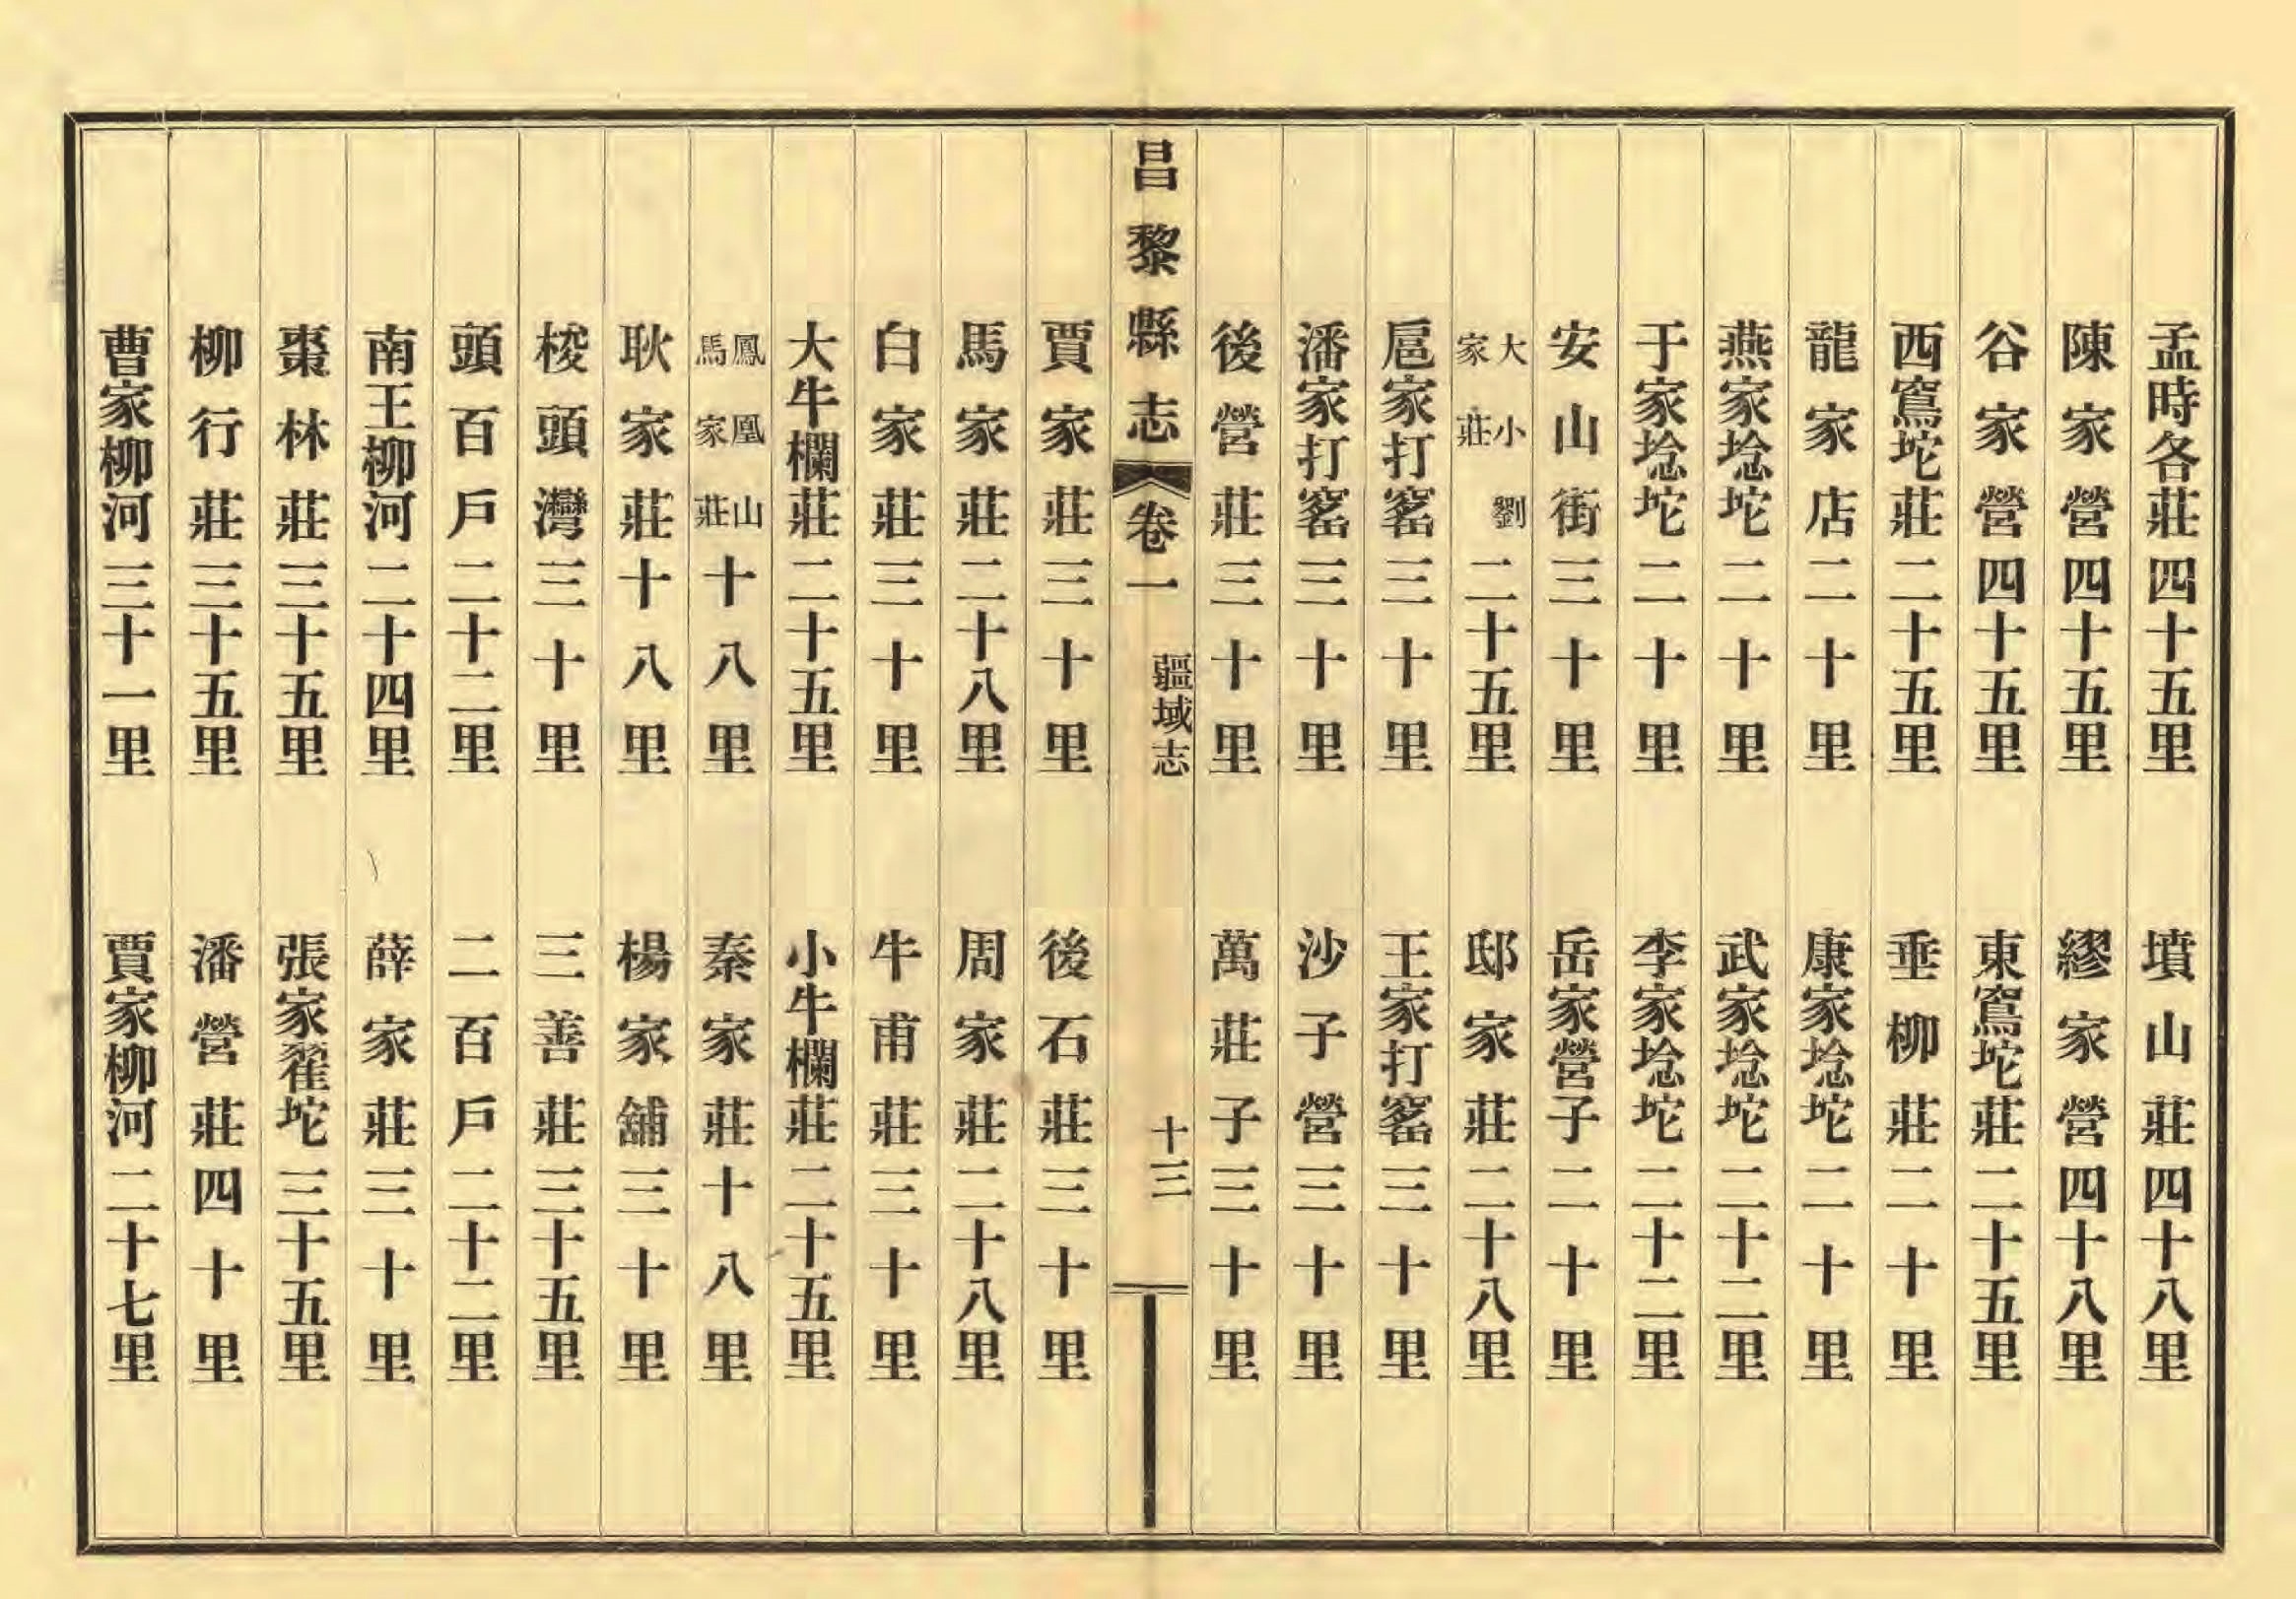 孟時各莊四十五里　墳山莊四十八里
陳家營四十五里　繆家營四十八里
谷家營四十五里　東窵坨莊二十五里
西窵坨莊二十五里　垂柳莊二十里
龍家店二十里　康家埝坨二十里
燕家埝坨二十里　武家埝坨二十二里
于家埝坨二十里　李家埝坨二十二里
安山街三十里　岳家營子二十里
大小劉家莊二十五里　邸家莊二十八里
扈家打窰三十里　王家打窰三十里
潘家打窰三十里　沙子營三十里
後營莊三十里　萬莊子三十里
昌黎縣志　卷一　疆域志　十三
賈家莊三十里　後石莊三十里
馬家莊二十八里　周家莊二十八里
白家莊三十里　牛甫莊三十里
大牛欄莊二十五里　小牛欄莊二十五里
鳳凰山馬家莊十八里　秦家莊十八里
耿家莊十八里　楊家舖三十里
梭頭灣三十里　三善莊三十五里
頭百戶二十二里　二百戶二十二里
南王柳河二十四里　薛家莊三十里
棗林莊三十五里　張家翟坨三十五里
柳行莊三十五里　潘營莊四十里
曹家柳河三十一里　賈家柳河二十七里